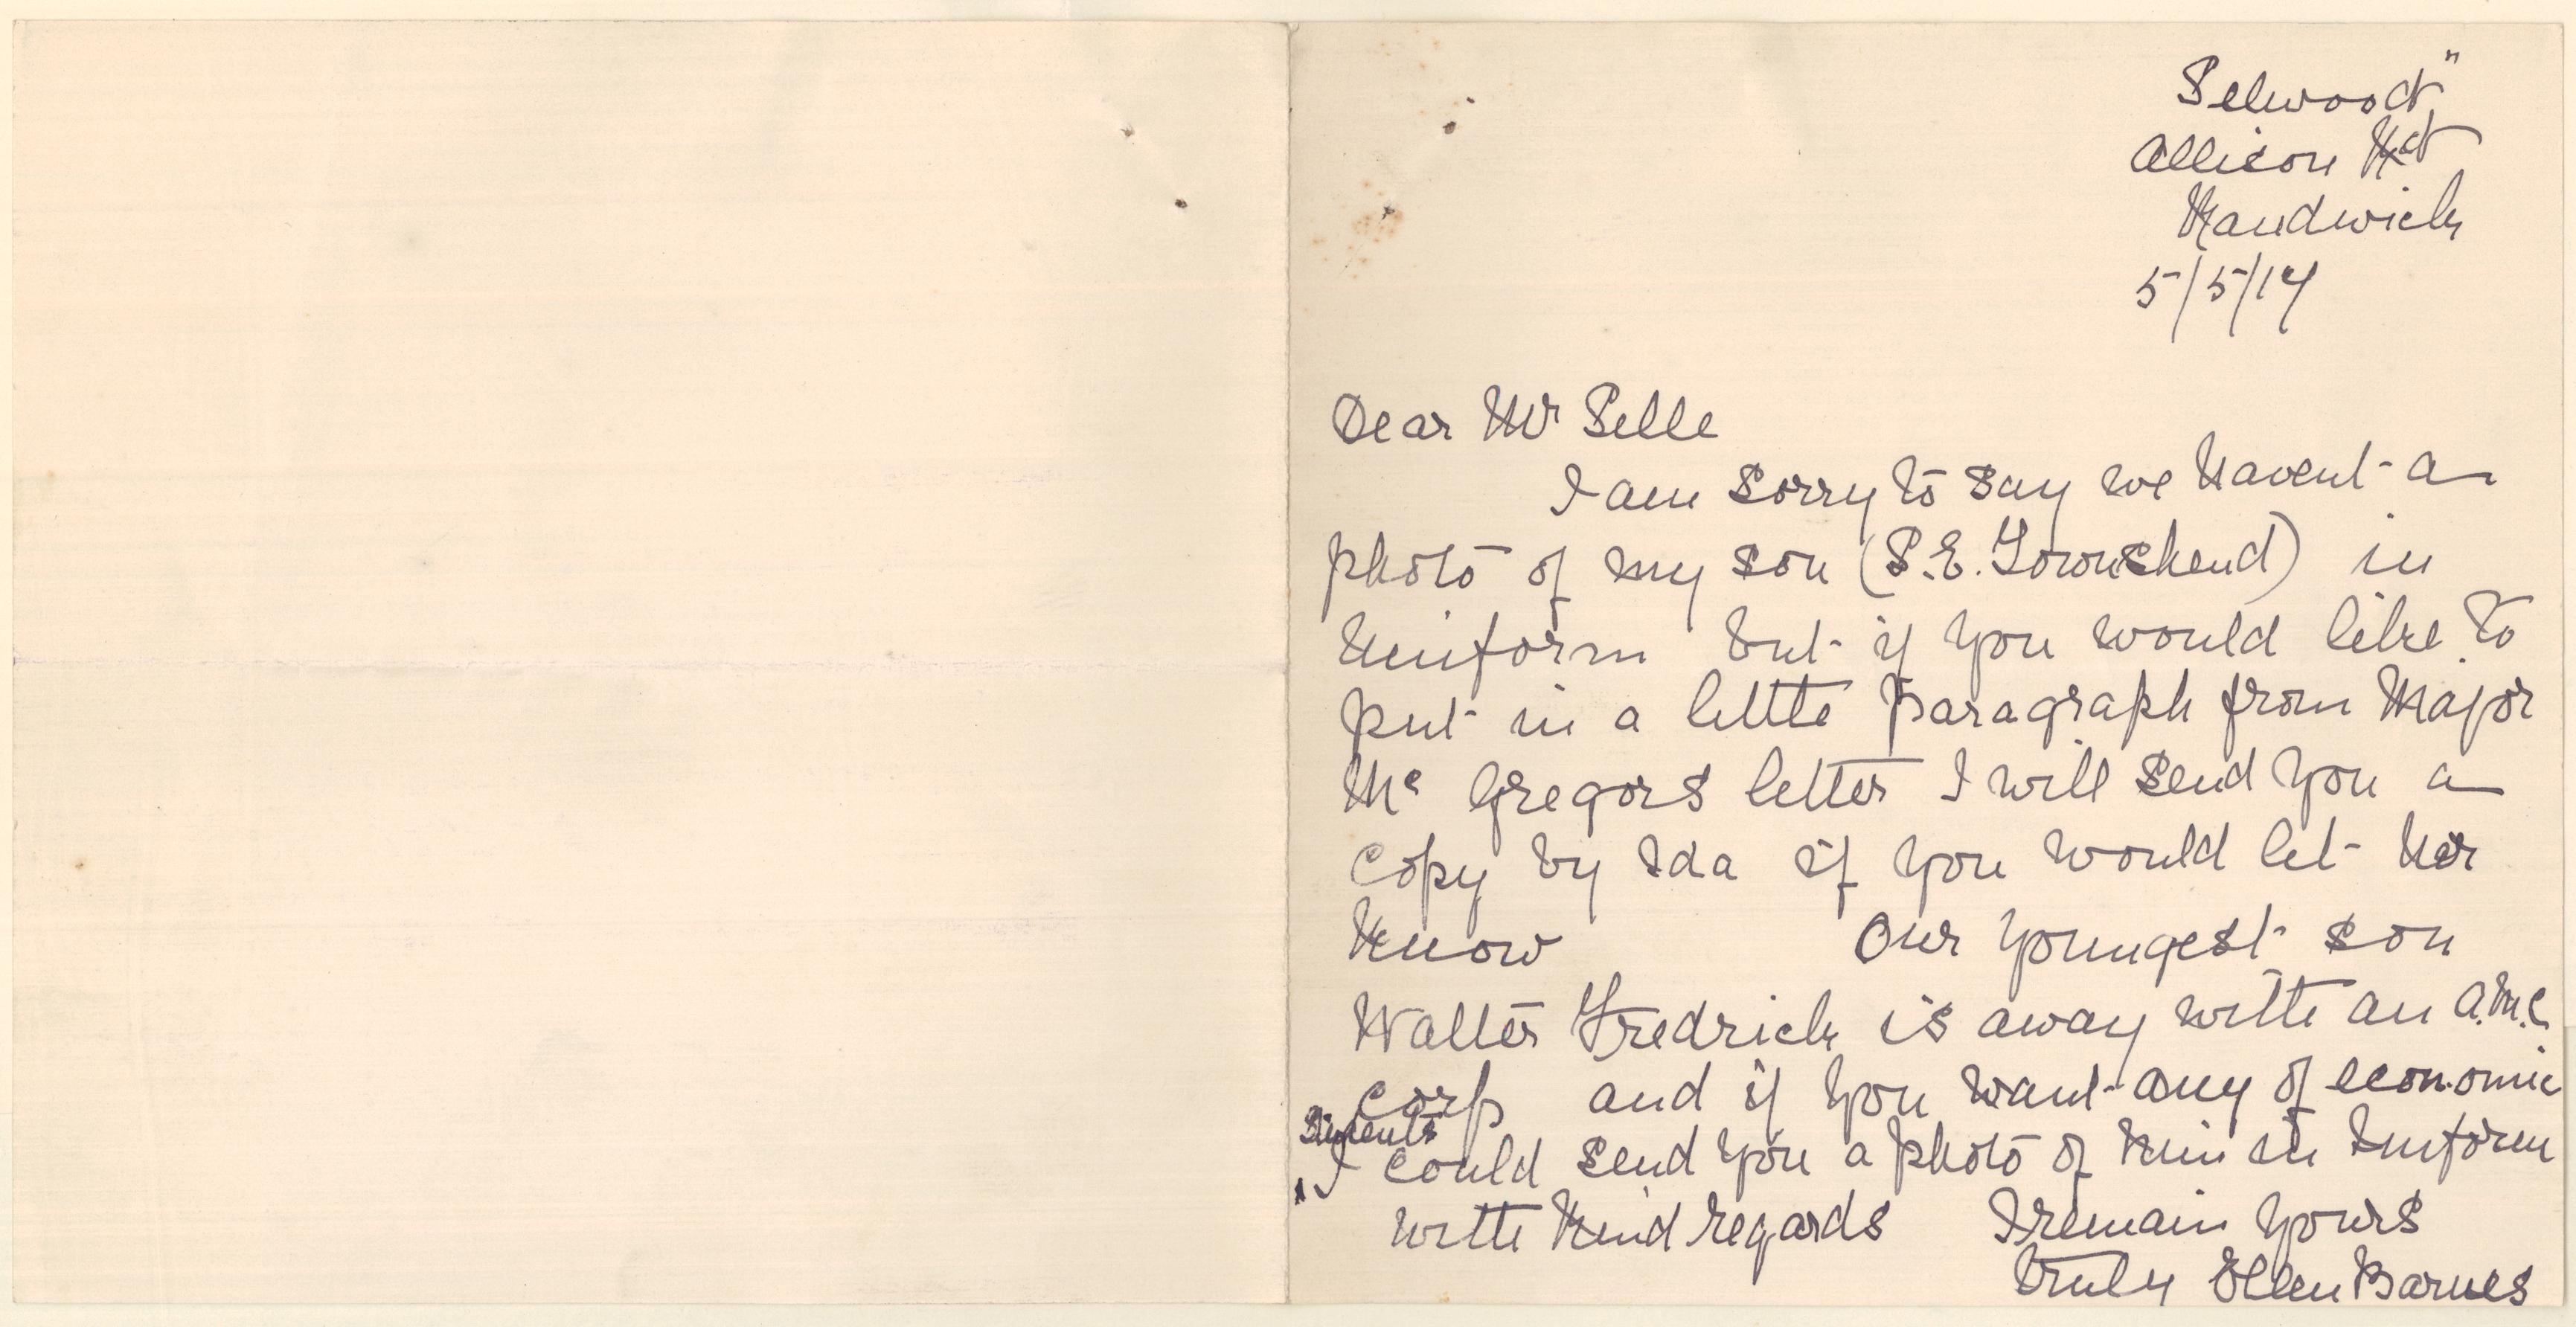 Selwood"
Allison Rd
Randwick
5/5/17
Dear Mr Selle
I am sorry to say we havent a
photo of my son (S.E. Townshend) in
Uniform but if you would like to
put in a little paragraph from Major
Mc Gregors letter I will send you a
copy by Ida if you would let her
know Our youngest son
Walter Fredrick is away with an A.M.C.
corps and if you want any of economic
students
I could send you a photo of him in Uniform
with kind regards I remain yours
truly Ellen Barnes